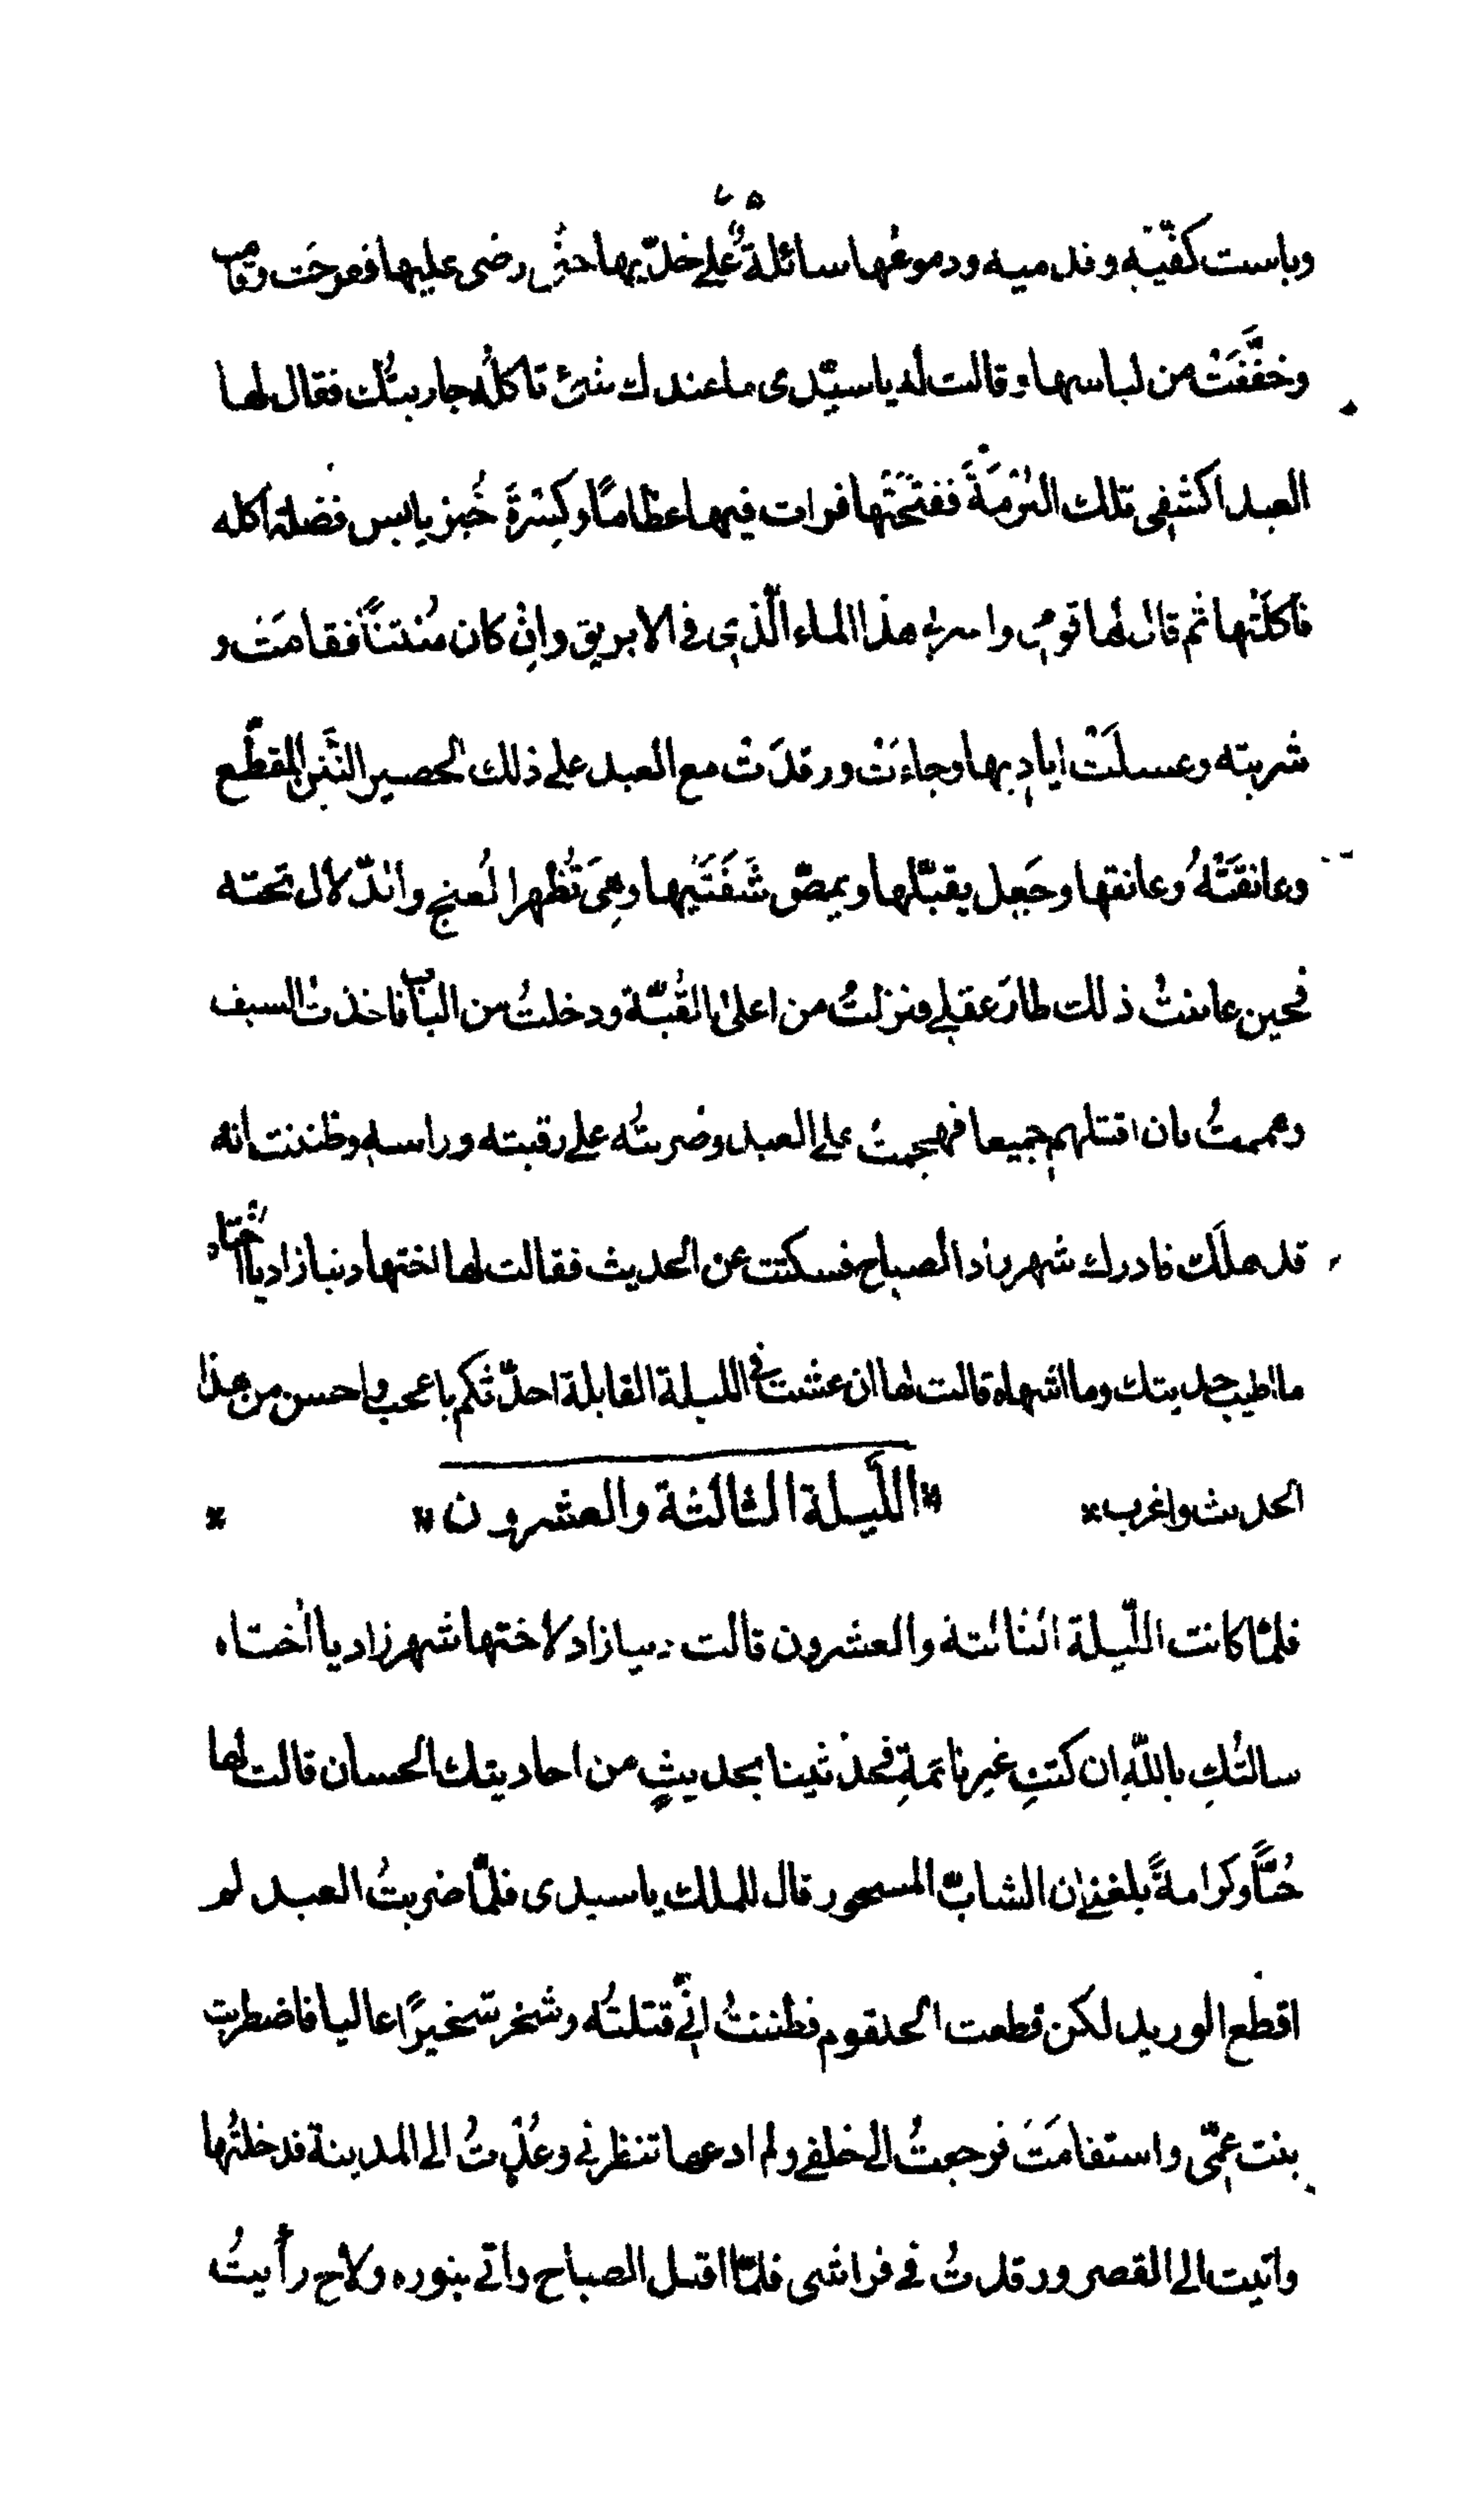 وباست كفّيه وقدميه ودموعها سائلةٌ على خدّيها حتى رضى عليها ففرحَت وقامت
وخفّفَتْ من لباسها وقالت له يا سيّدى ما عندك شئ تاكلُه جاريتُك فقال لها
العبد اكشفِى تلك البُرْمَةَ ففتَحَتْها فرات فيها عظامًا وكِسْرةَ خُبزٍ يابس فضلة اكله
فاكلَتْها ثم قال لها قومِى واشربى هذا الماء الّذِى فى الابريق وانِ كان مُنتنًا فقامَتْ و
شربته وغسلَتْ اياديها وجاءَتْ ورقدَت مع العبد على ذلك الحصير النَّتِن المقطّع
وعانقَتْهُ وعانقها وجَعل يقبّلها ويمصّ شَفَتَيْها وهِىَ تُظهر الغُنج والدّلال تحته
فحين عاينتُ ذلك طارَ عقلى ونزلتُ من اعلىٰ القُبّة ودخلتُ من الباب فاخذتُ السيف
وهممتُ بان اقتلهم جميعا فهجمتُ على العبد وضربتُه على رقبته وراسه وظننت انه
قد هلك فادرك شهرزاد الصباح فسكتت عن الحديث فقالت لها اختها دينازاد يا اُختاه
ما اطيب حديثك وما اشهاه قالت لها ان عشتُ فى الليلة القابلة احدّثكم باعجب واحسن من هذا
الحديث واغرب * * اللّيلة الثالثة والعشرون * *
فلمّا كانت اللّيلة الثالثة والعشرون قالت دينازاد لاختها شهرزاد يا اُختاه
سالتُكِ باللّهِ ان كنتِ غير نائمةٍ فحدّثينا بحديثٍ من احاديثك الحسان قالت لها
حُبًّا وكرامةً بلغنى ان الشابّ المسحور قال للملك يا سيدى فلمّا ضربتُ العبد لم
اقطع الوريد لكن قطعت الحلقوم فظننتُ انّى قتلتُه وشخر شخيرًا عاليا فاضطربت
بنت عمِّى واستفامَتَ فرجعتُ الى خلفى ولم ادعها تنظرنى وعُدتُ الى المدينة فدخلتُها
واتيت الى القصر ورقدتُ فى فراشى فلمّا اقبل الصباح واتى بنوره ولاح رأيتُ